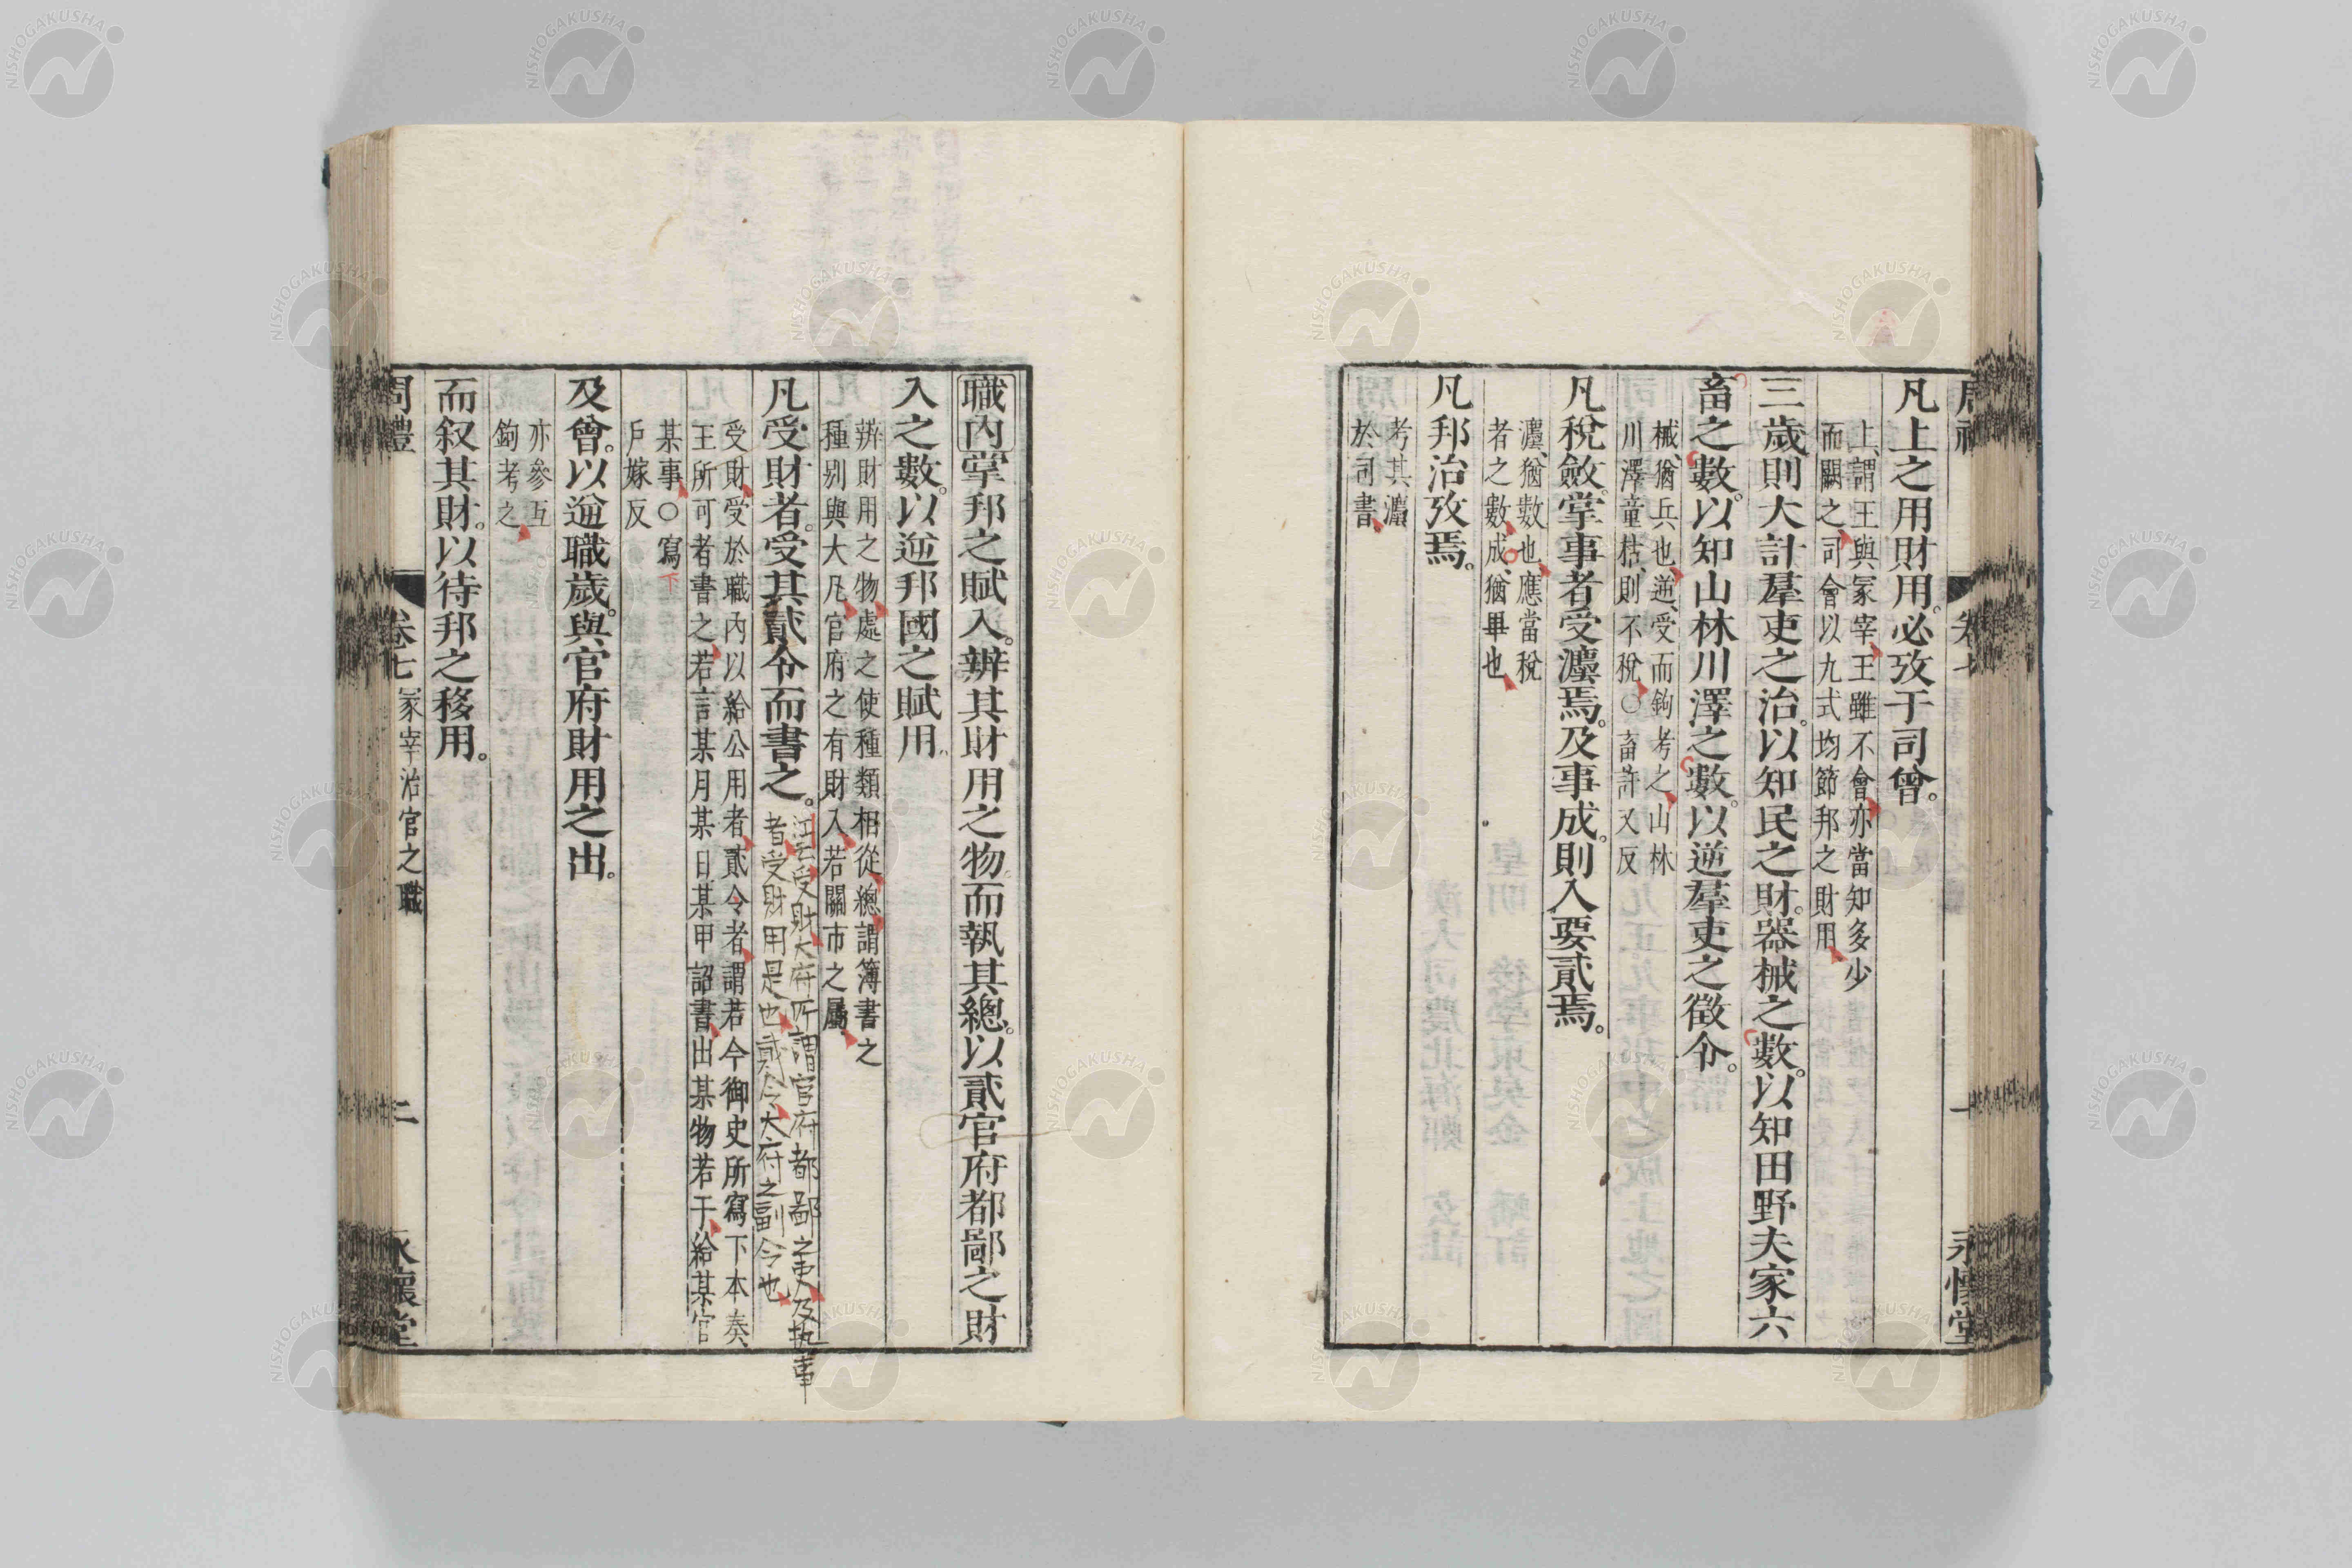 周禮
卷七
一
永懷堂
凡上之用財用。必攷于司會。
上、謂王與冢宰、王雖不會、亦當知多少
而闕之、司會以九式均節邦之財用
三歲則大計羣吏之治。以知民之財。器械之數。以知田野夫家六
畜之數。以知山林川澤之數。以逆羣吏之徵令。
械、猶兵也、逆、受而鉤考之、山林
川澤童枯、則不稅、○畜許又反
凡稅斂。掌事者受灋焉。及事成。則入要貳焉。
灋、猶數也、應當稅
者之數、成、猶畢也
凡邦治攷焉。
考其灋
於司書
職內掌邦之賦入。辨其財用之物而執其總。以貳官府都鄙之財
入之數。以逆邦國之賦用。
辨財用之物、處之使種類相從、總、謂簿書之
種别與大凡、官府之有財入、若關市之屬
凡受財者。受其貳令而書之。
江云受財大府所謂官府都鄙之吏及执事
者受財用是也貳令大府之副令也
受財、受於職內以給公用者、貳令者、謂若今御史所寫下本奏
王所可者書之、若言某月某日某甲詔書、出某物若干、給某官
某事、○寫下
戶嫁反
及會。以逆職歲。與官府財用之出。
亦參互
鉤考之
而叙其財。以待邦之移用。
周禮
卷七
冢宰治官之職
二
永懷堂
NISHOGAKUSHA